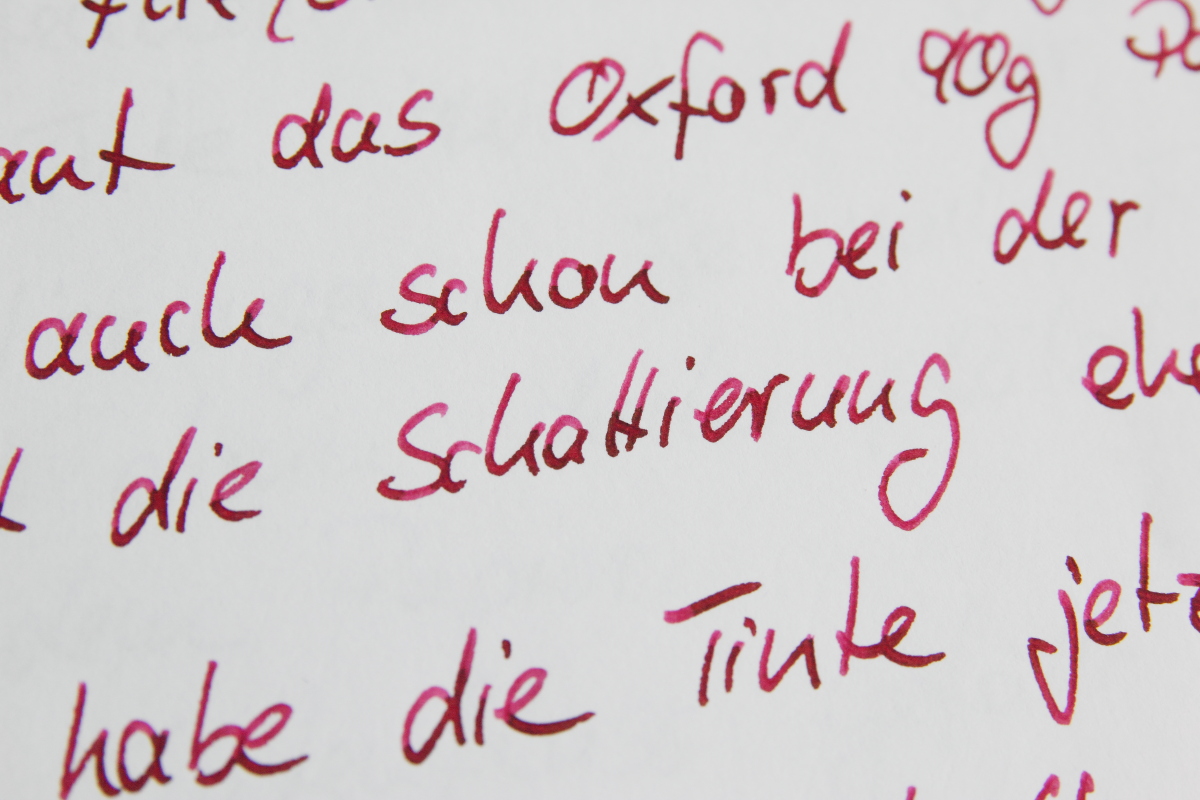 das Oxford 90g
auch schon bei der
die Schattierung
habe die Tinte